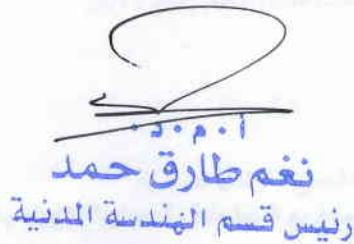 أ.م.د.
نغم طارق حمد
رئيس قسم الهندسة المدنية